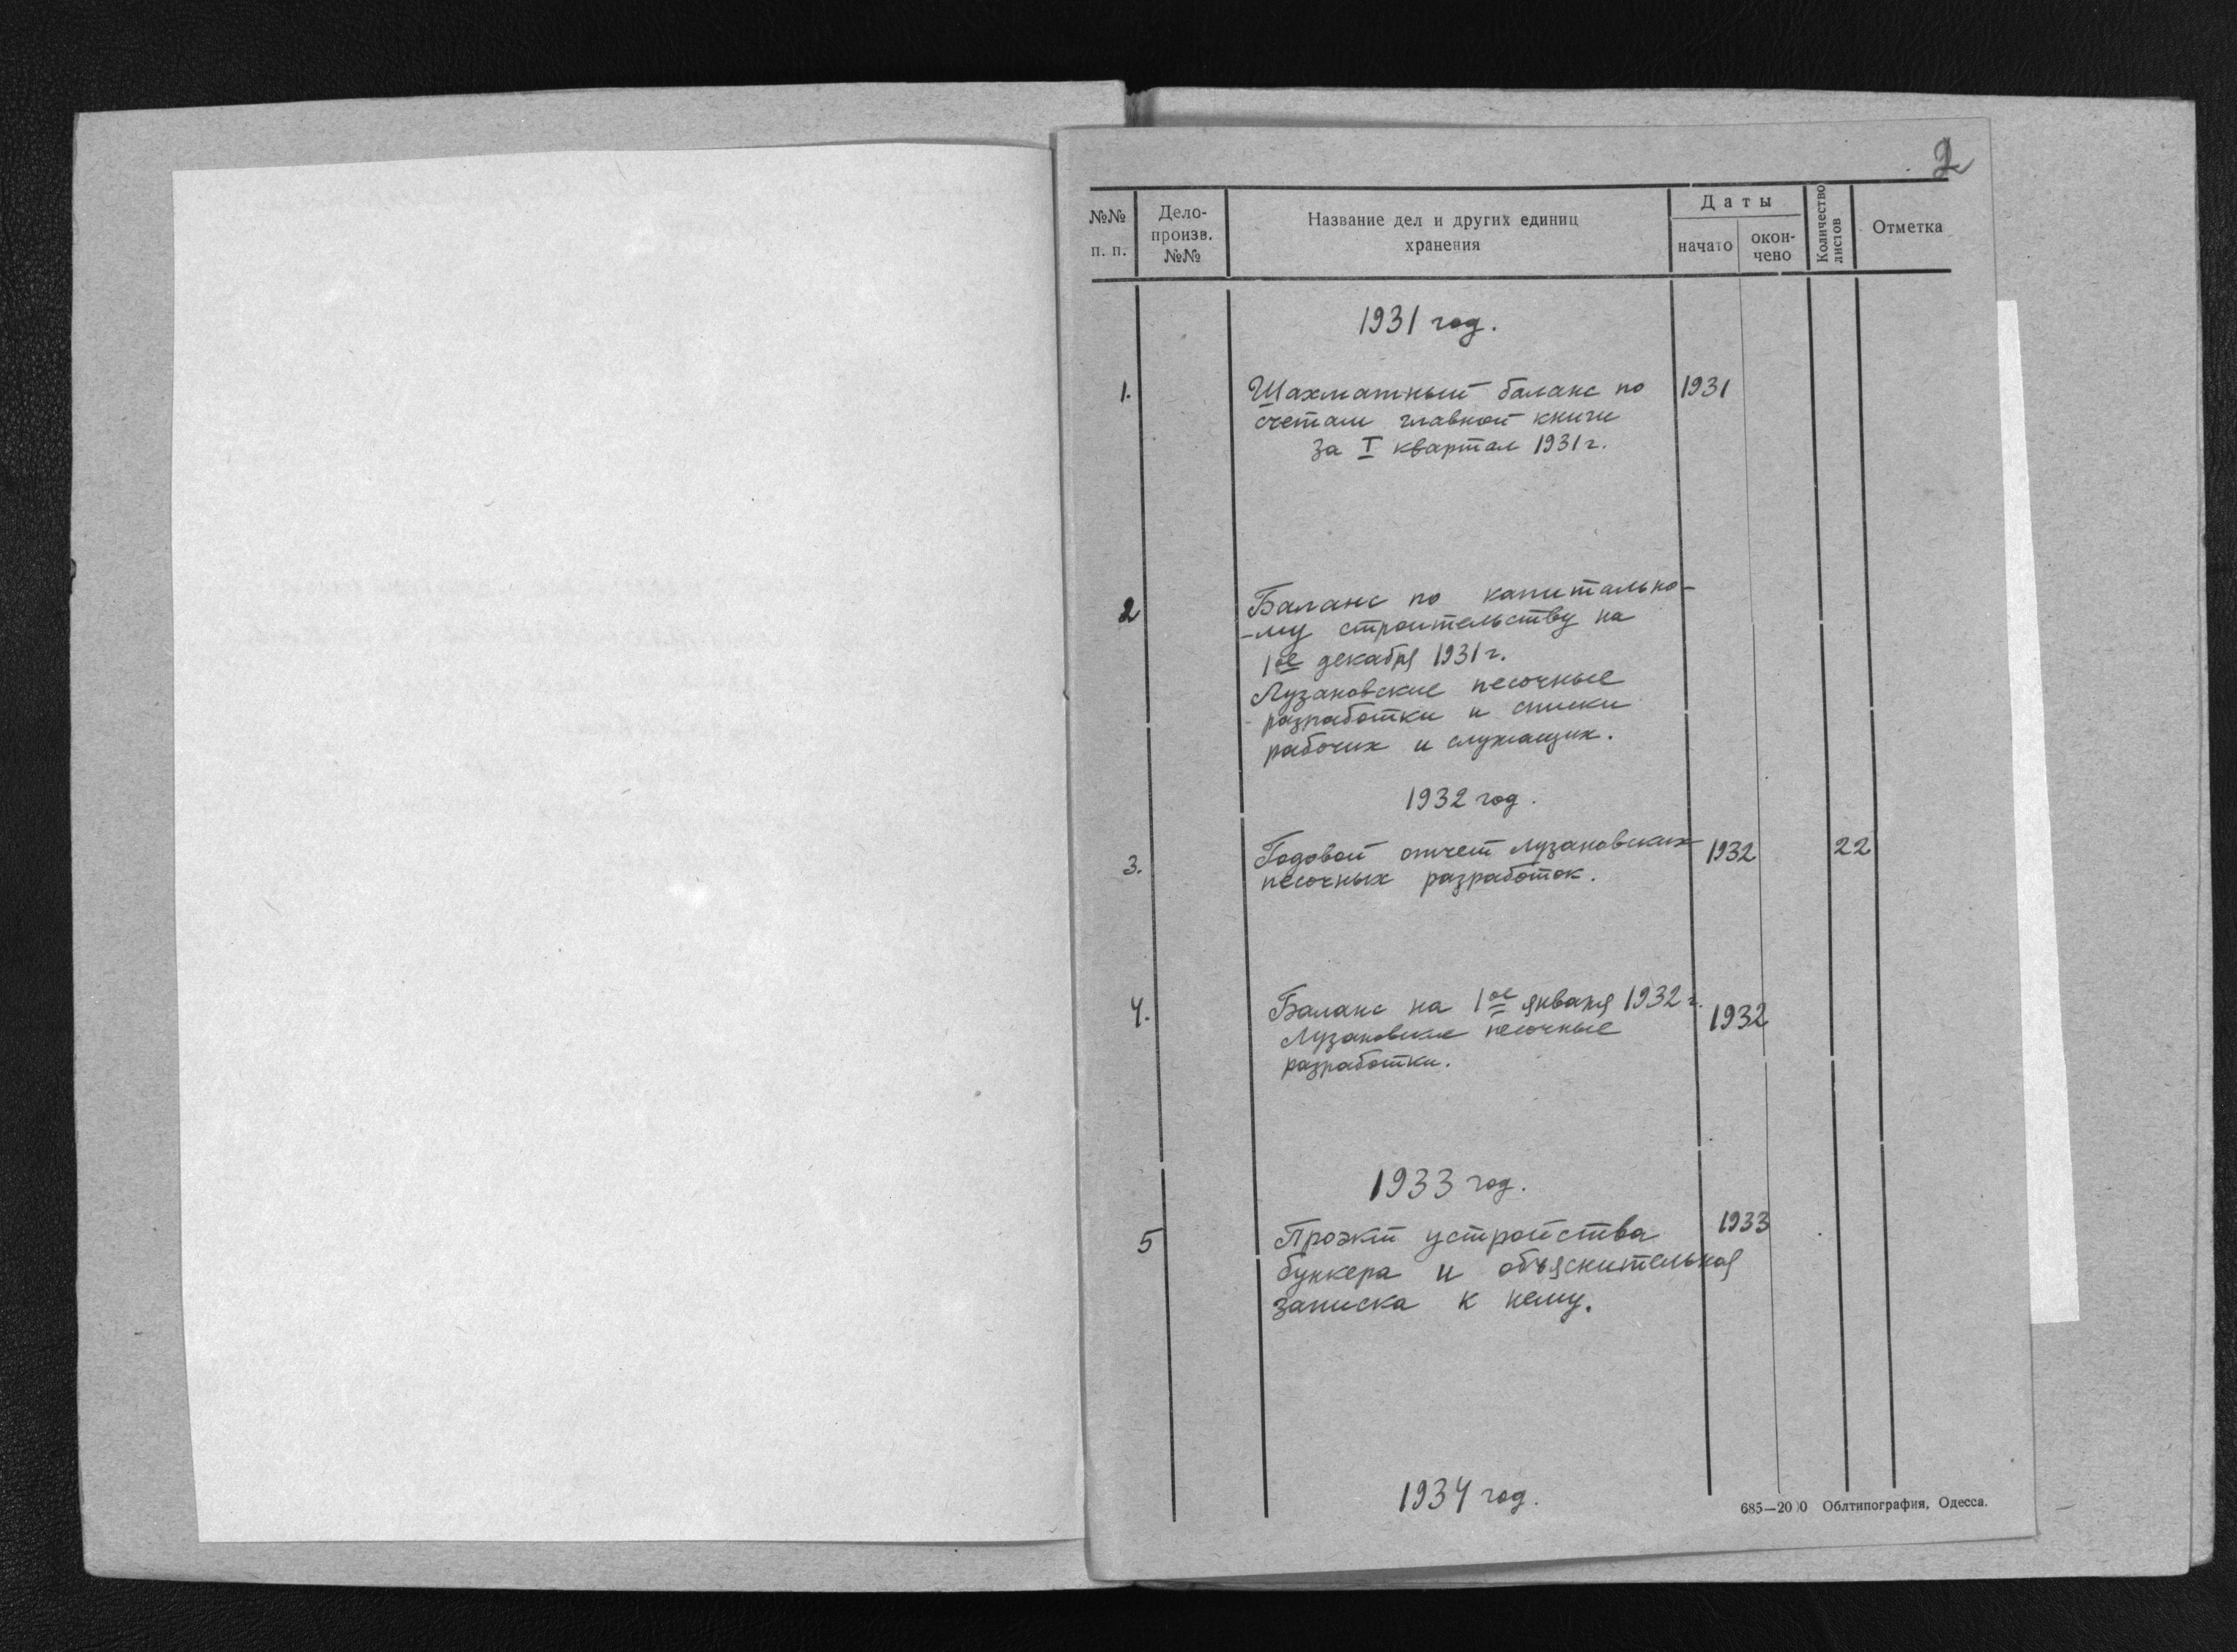 2
№№ п. п.
Дело-
произв.
№№
Название дел и других единиц
хранения
Даты
начато
окон-
чено
Количество
листов
Отметка
1931 год.
1. Шахматный баланс по 1931
счетам главной книги
за I квартал 1931 г.
2 Баланс по капитально-
-му строительству на
1ое декабря 1931 г.
Лузановские песочные
разработки и списки
рабочих и служащих.
1932 год.
3. Годовой отчет Лузановских 1932 22
песочных разработок.
4. Баланс на 1ое января 1932 г. 1932
Лузановские песочные
разработки.
1933 год.
5 Проэкт устройства 1933
бункера и объяснительная
записка к нему.
1934 год.
685—2000 Облтипография, Одесса.